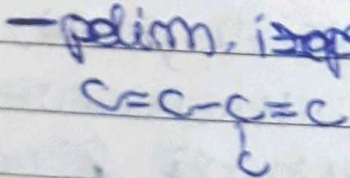 - polim. izop
C=C-C=C
C